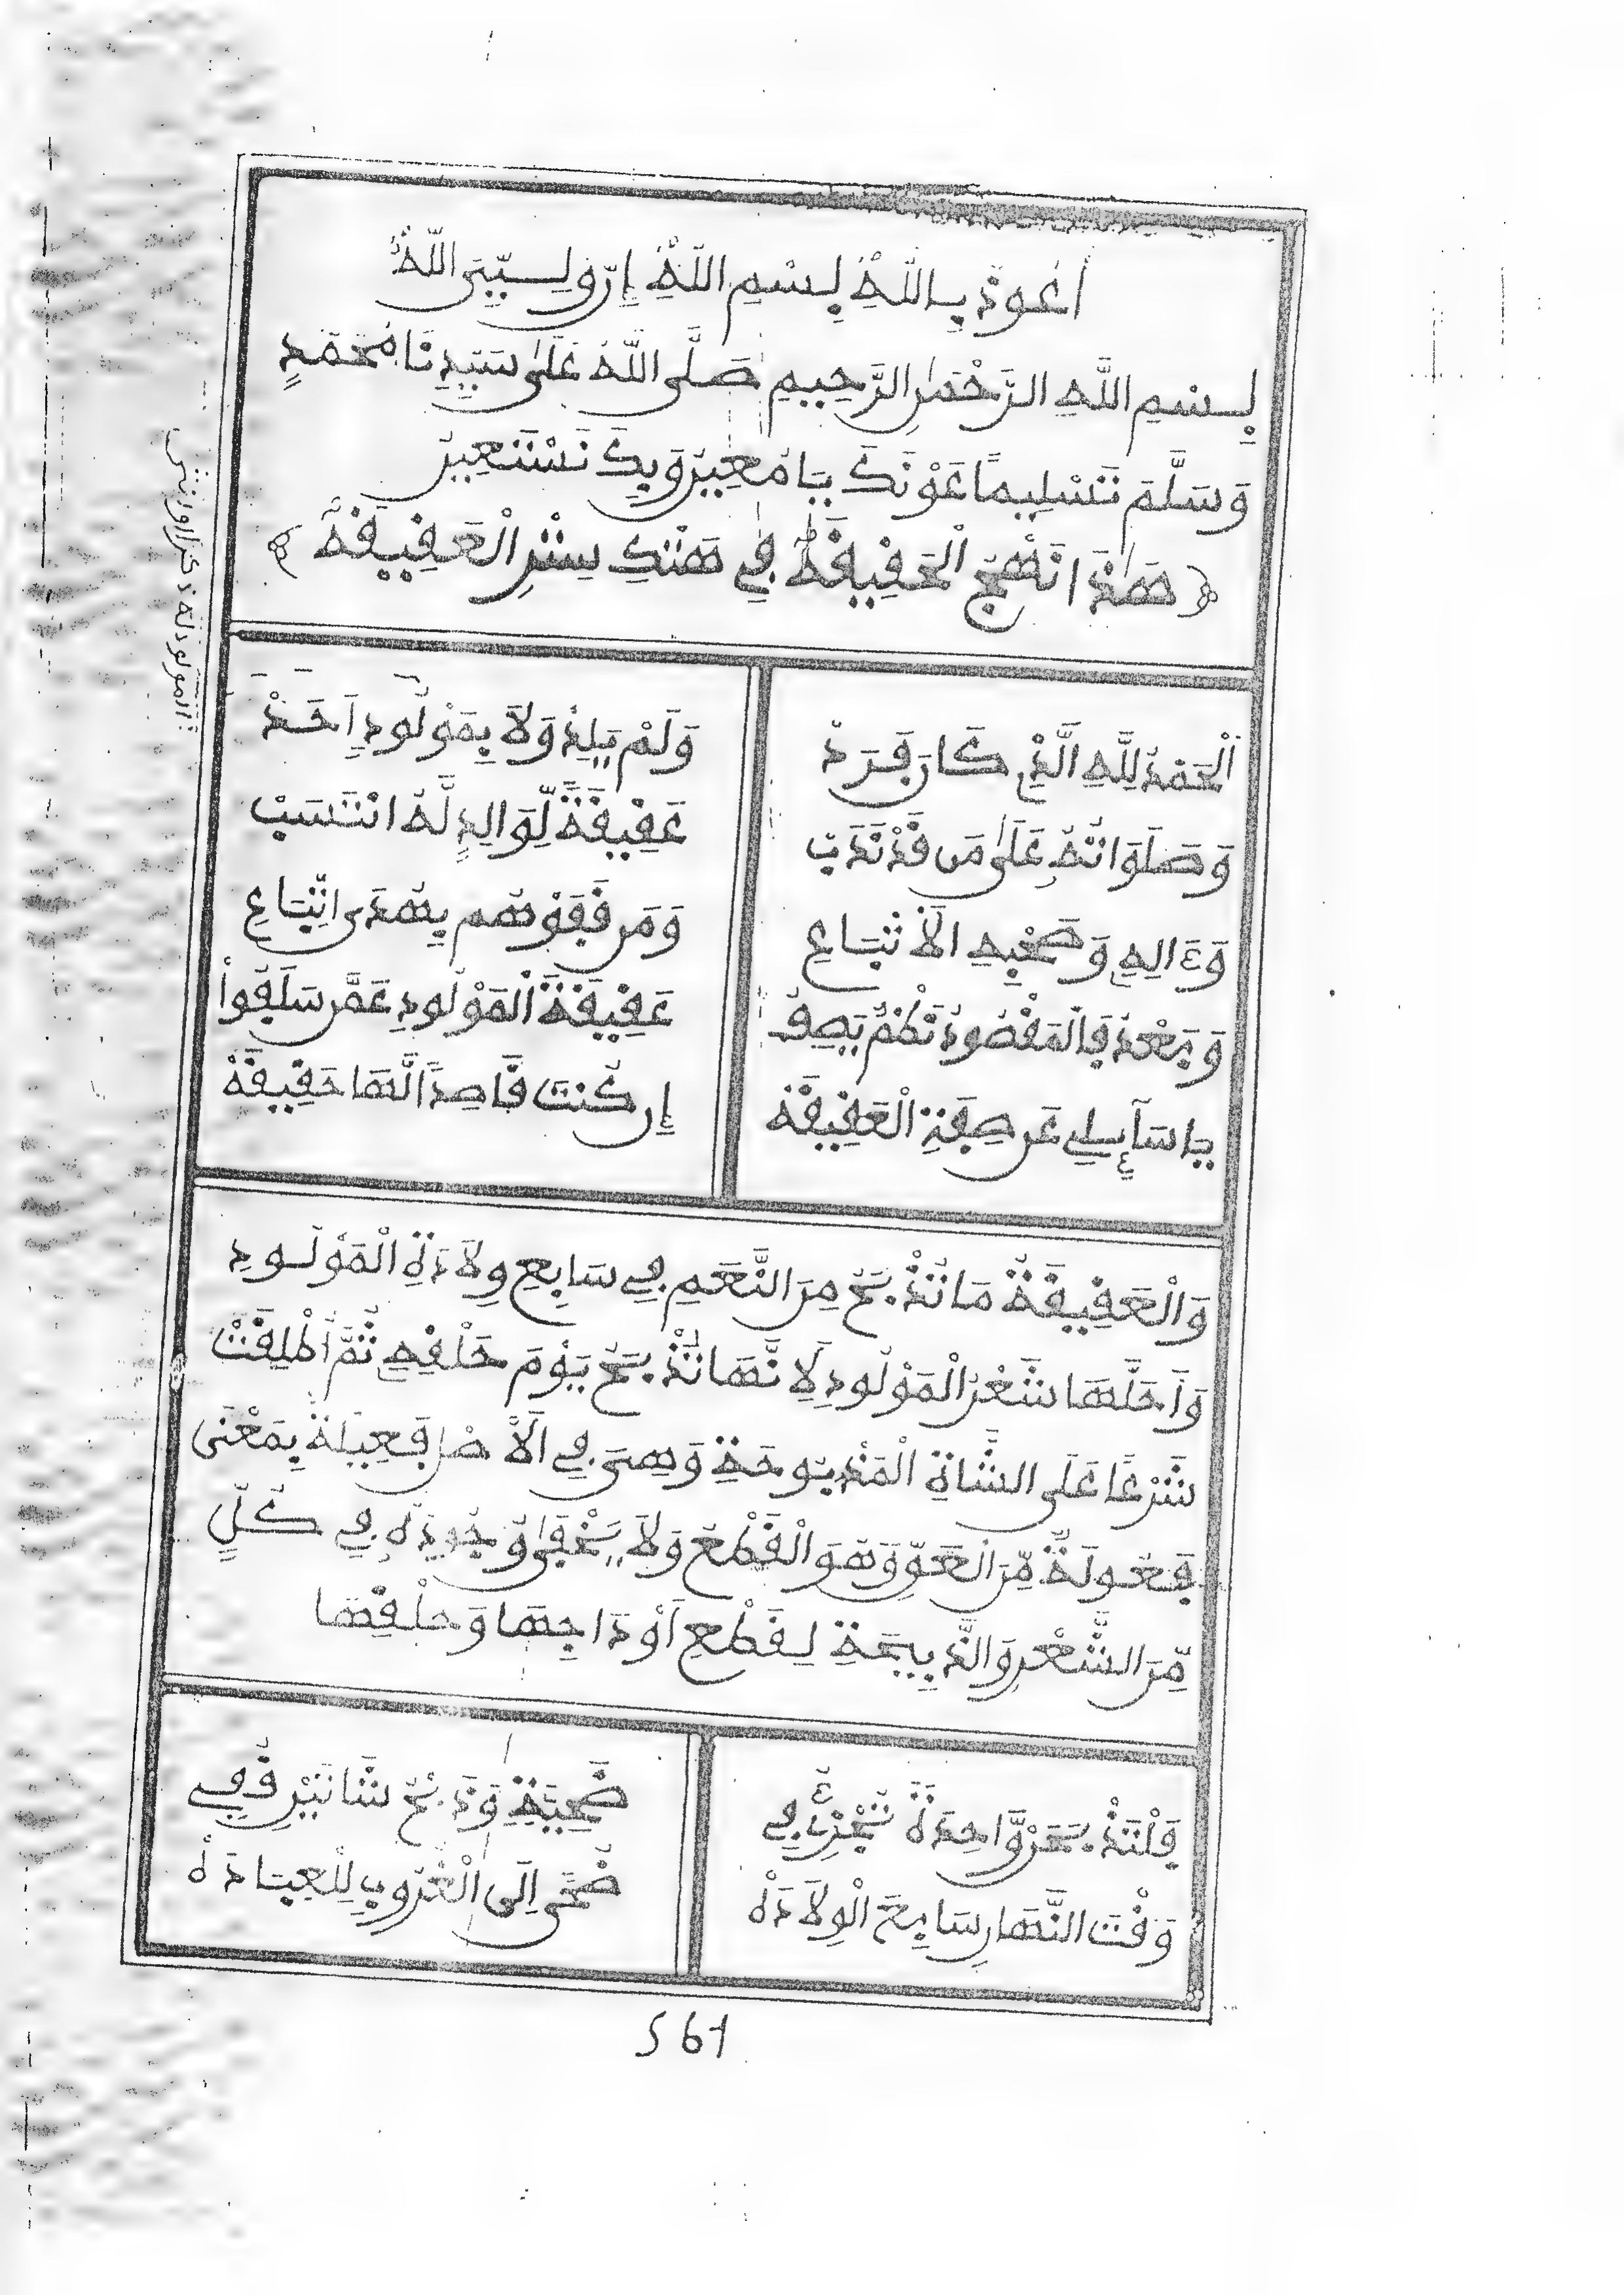 أعوذ بالله بسم الله إن وليي الله
بسم الله الرحمن الرحيم صلى الله على سيدنا محمد
وسلم تسليما عونك يا معين وبك نستعين
هذا نهج الحقيقة في هتك ستر العقيقة
الحمد لله الذي كان فرد
ولم يلد ولا بمولود أحد
وصلواته على من قد ندب
عقيقة لوالد له انتسب
وءاله وصحبه الأتباع
ومن قفوهم بهدى اتباع
وبعد فالمقصود نظم يصف
عقيقة المولود عمن سلفوا
يا سآئلي عن صفة العقيقة
إن كنت قاصدا لها حقيقة
والعقيقة ما تذبح من النعم في سابع ولادة المولود
وأصلها شعر المولود لأنها تذبح يوم حلقه ثم أطلقت
شرعا على الشاة المذبوحة وهي في الأصل فعيلة بمعنى
مفعولة من العق وهو القطع ولا يخفى وجوده في كل
من الشعر والذبيحة لقطع أوداجها وحلقها
فلتذبحن واحدة تجزئ في
ضحية وذبح شاتين قفي
وقت النهار سابع الولادة
ضحى إلى الغروب للعبادة
المولود لة ذكرا وانثى
561